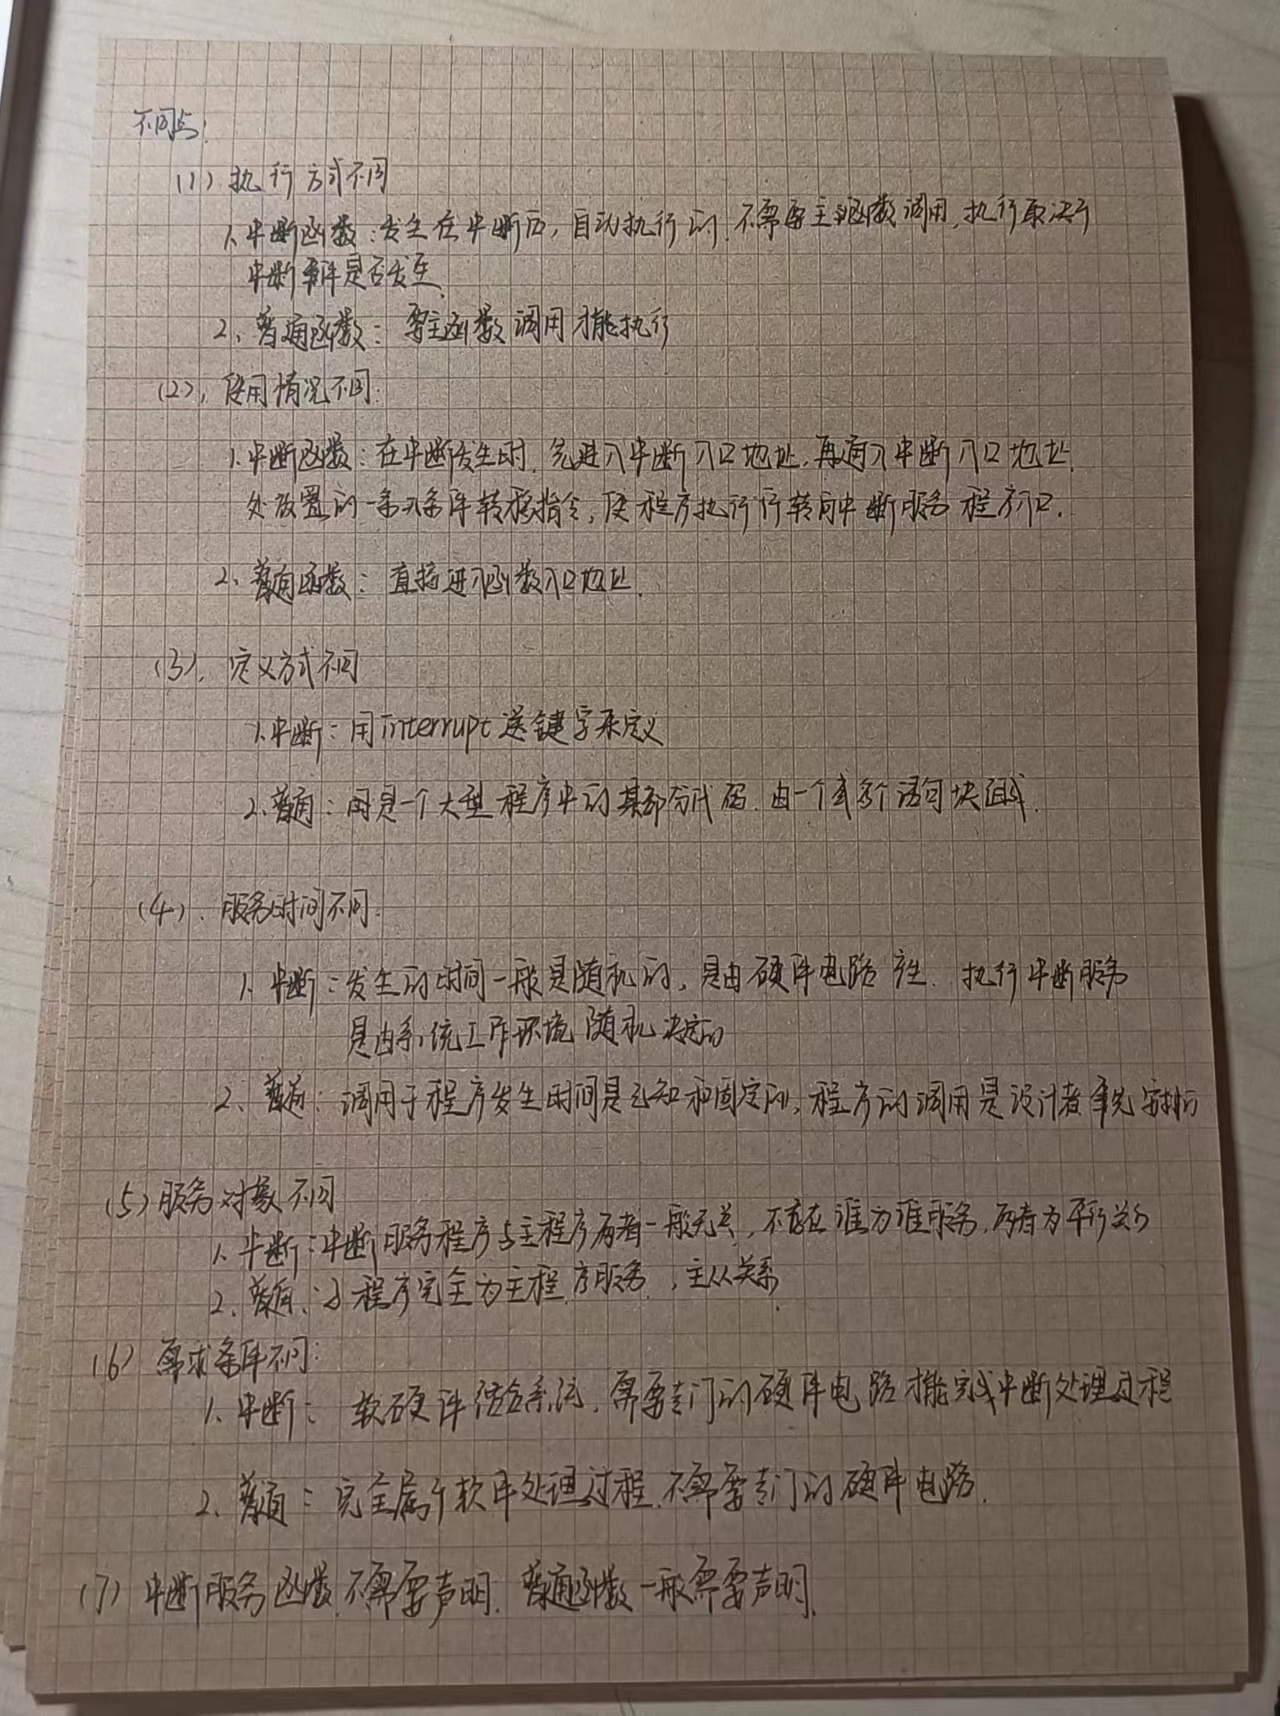 不同点:
(1) 执行方式不同
1、中断函数:发生在中断后,自动执行的,不需要主函数调用,执行取决于
中断事件是否发生.
2、普通函数:要主函数调用才能执行
(2), 使用情况不同:
1、中断函数:在中断发生时,先进入中断入口地址,再通入中断入口地址
处放置的一条无条件转移指令,使程序执行行转向中断服务程序入口.
2、普通函数:直接进入函数入口地址.
(3), 定义方式不同
1、中断:用interrupt 关键字来定义
2、普通:用是一个大型程序中的某部分代码.由一个或多个语句块组成.
(4). 服务时间不同:
1、中断:发生的时间一般是随机的,是由硬件电路产生.执行中断服务
是由系统工作环境随机决定的
2、普通:调用子程序发生时间是已知和固定的,程序的调用是设计者事先安排的
(5) 服务对象不同
1、中断:中断服务程序与主程序两者一般无关,不存在谁为谁服务,两者为平行关系
2、普通:子程序完全为主程序服务,主从关系
(6) 需求条件不同:
1、中断:软硬件结合系统,需要专门的硬件电路才能完成中断处理过程
2、普通:完全属于软件处理过程,不需要专门的硬件电路.
(7) 中断服务函数不需要声明.普通函数一般需要声明.